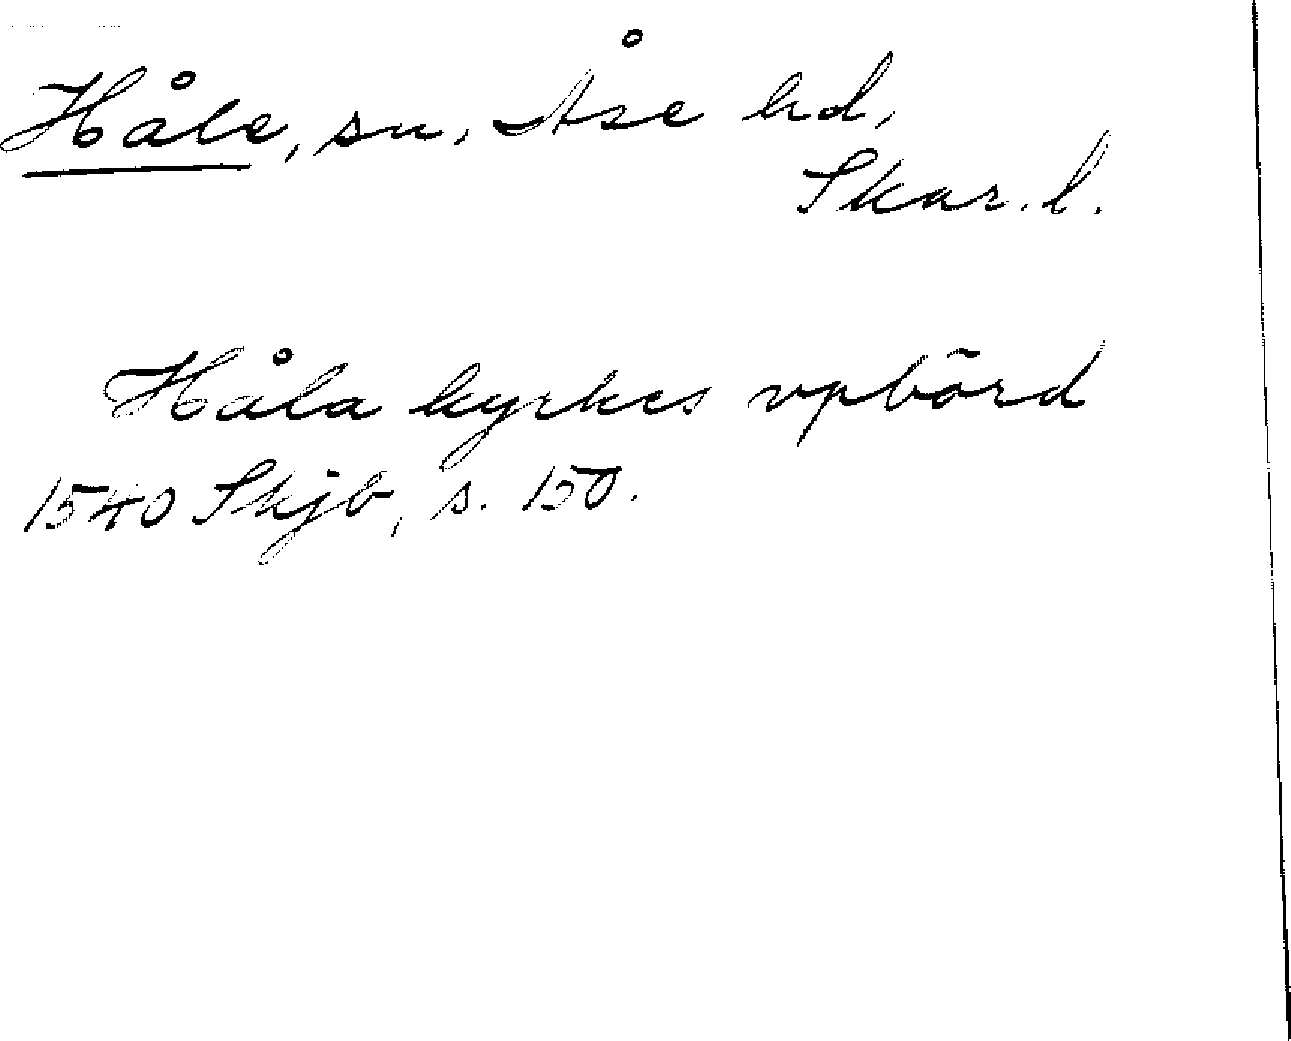 Håle, sn. Åse hd,
Skar. l.
Håla kyrkes vpbörd
1540 Skjb, s. 150.